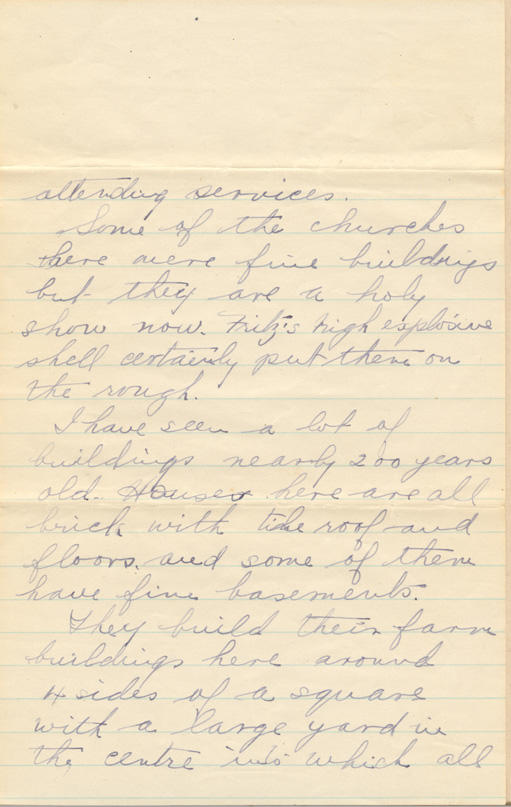 attending services.
Some of the churches
here were fine buildings
but they are a holy
show now. Fritz's high explosive
shell certainly put them on
the rough.
I have seen a lot of
buildings nearly 200 years
old. Houses here are all
brick with tile roof and
floors, and some of them
have fine basements.
They build their farm
buildings here around
4 sides of a square
with a large yard in
the centre into which all